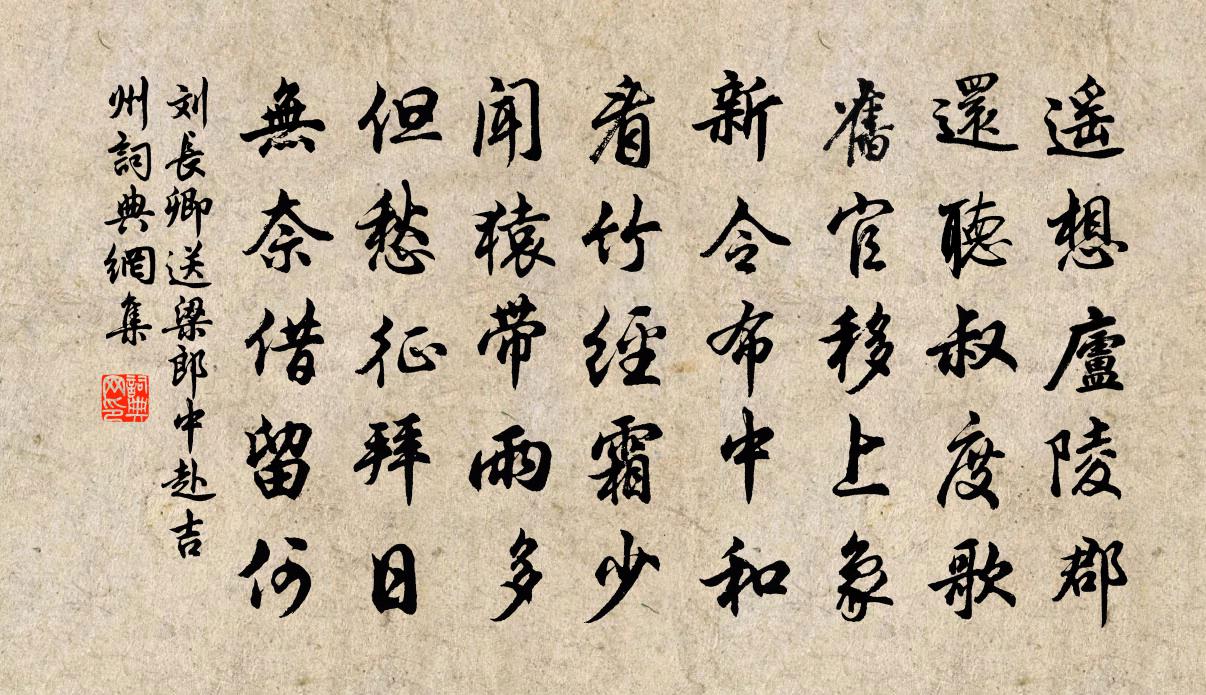 遥想廬陵郡
還聽叔度歌
舊官移上象
新令布中和
看竹經霜少
聞猿带雨多
但愁征拜日
無奈借留何
刘長卿送梁郎中赴吉
州詞典網集
詞典网印